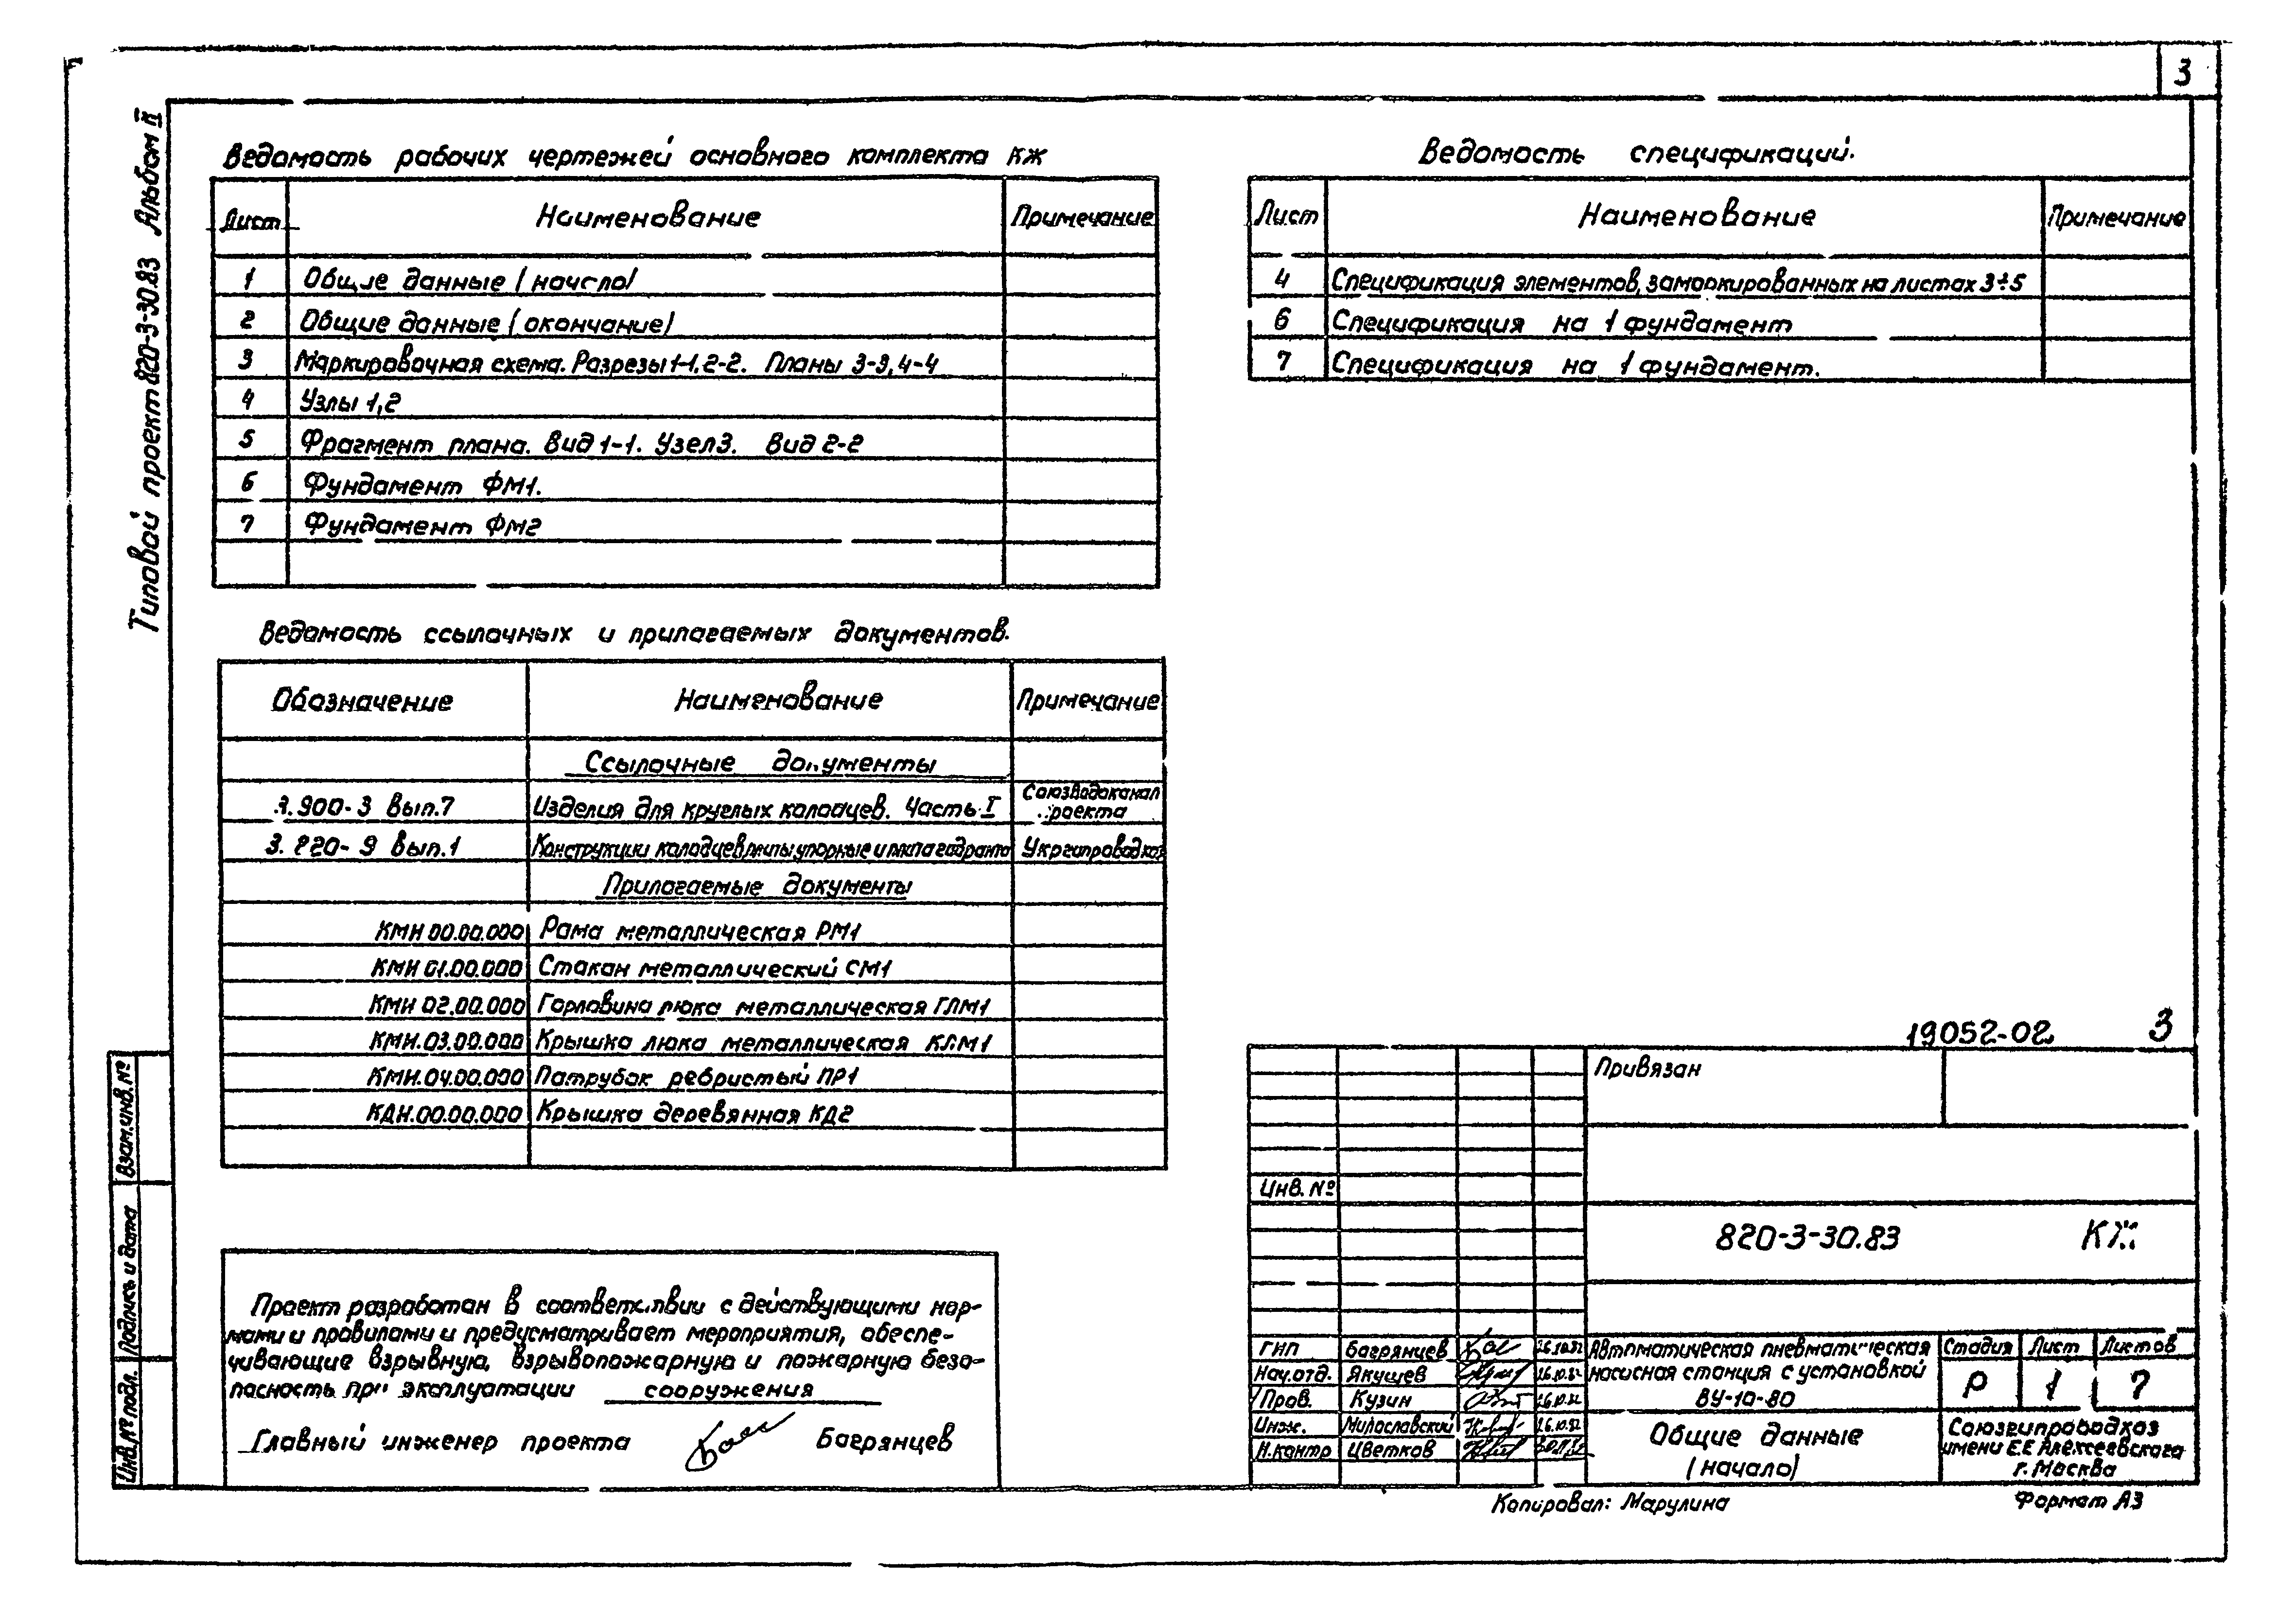 3
Типовой проект 820-3-30.83 Альбом II
Ведомость рабочих чертежей основного комплекта КЖ
Лист Наименование Примечание
1 Общие данные (начало)
2 Общие данные (окончание)
3 Маркировочная схема. Разрезы 1-1, 2-2. Планы 3-3, 4-4
4 Узлы 1,2
5 Фрагмент плана. Вид 1-1. Узел 3. Вид 2-2
6 Фундамент ФМ1.
7 Фундамент ФМ2
Ведомость спецификаций.
Лист Наименование Примечание
4 Спецификация элементов, замаркированных на листах 3÷5
6 Спецификация на 1 фундамент
7 Спецификация на 1 фундамент.
Ведомость ссылочных и прилагаемых документов.
Обозначение Наименование Примечание
Ссылочные документы
3.900-3 Вып.7 Изделия для круглых колодцев. Часть I Союзводоканал
проекта
3.820-9 Вып.1 Конструкции колодцев, плиты упорные и плита гидранта Укргипроводхоз
Прилагаемые документы
КМИ 00.00.000 Рама металлическая РМ1
КМИ 01.00.000 Стакан металлический СМ1
КМИ 02.00.000 Горловина люка металлическая ГЛМ1
КМИ.03.00.000 Крышка люка металлическая КЛМ1
КМИ.04.00.000 Патрубок ребристый ПР1
КДИ.00.00.000 Крышка деревянная КД2
Проект разработан в соответствии с действующими нор-
мами и правилами и предусматривает мероприятия, обеспе-
чивающие взрывную, взрывопожарную и пожарную безо-
пасность при эксплуатации сооружения
Главный инженер проекта Багрянцев
Взам.инв.№
Подпись и дата
Инв.№ подл.
19052-02 3
Привязан
Инв. №
820-3-30.83 КЖ
ГИП Багрянцев 26.10.82
Нач.отд. Якушев 26.10.82
Пров. Кузин 26.10.82
Инж. Милославский 26.10.82
Н.контр Цветков
Автоматическая пневматическая
насосная станция с установкой
ВУ-10-80
Стадия Лист Листов
Р 1 7
Общие данные
(начало)
Союзгипроводхоз
имени Е.Е Алексеевского
г. Москва
Копировал: Марулина
Формат А3